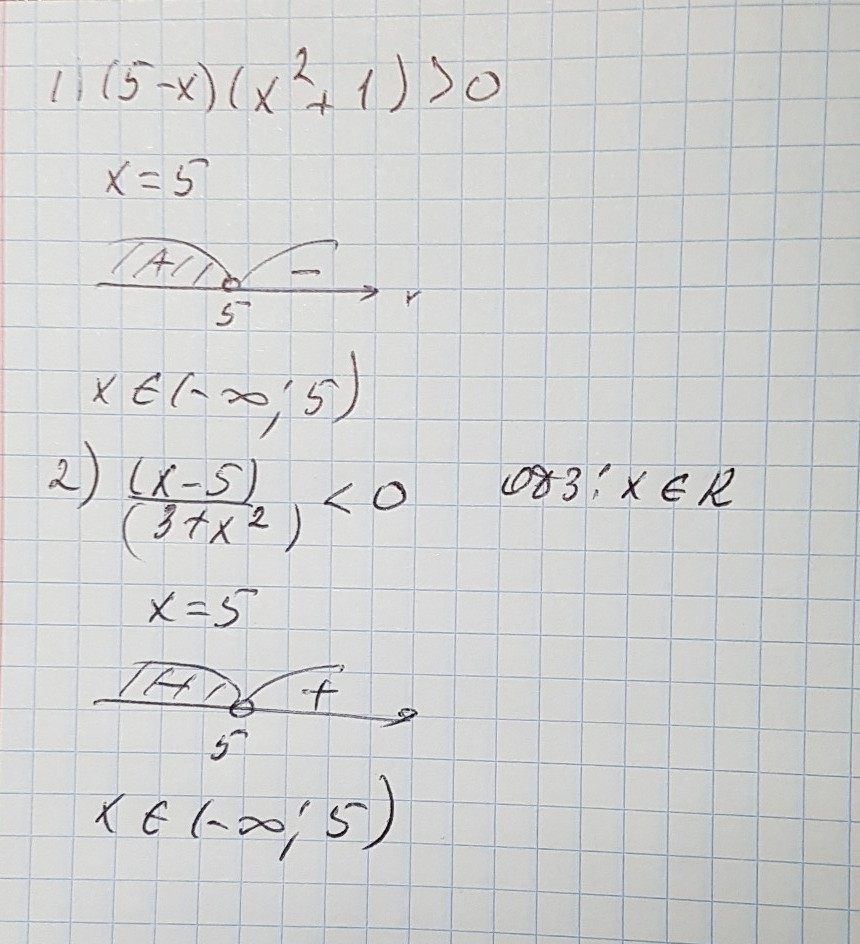 1) (5-x)(x²+1)>0
x=5
+ -
5 x
x∈(-∞; 5)
2) (x-5)/(3+x²) <0 одз: x∈R
x=5
+
5
x∈(-∞; 5)